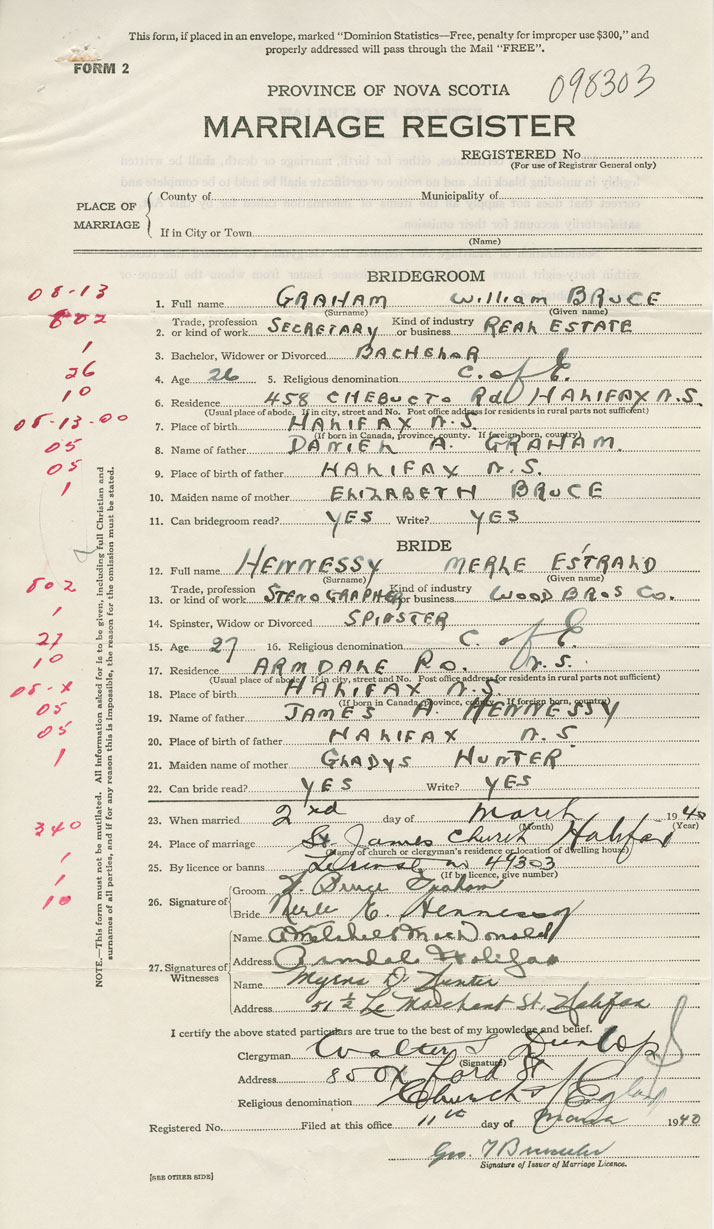 This form, if placed in an envelope, marked “Dominion Statistics—Free, penalty for improper use $300,” and
properly addressed will pass through the Mail “FREE”.
FORM 2
PROVINCE OF NOVA SCOTIA
098303
MARRIAGE REGISTER
REGISTERED No.
(For use of Registrar General only)
PLACE OF MARRIAGE
County of Municipality of
If in City or Town
(Name)
BRIDEGROOM
08-13
1. Full name GRAHAM William BRUCE
(Surname) (Given name)
802
2. Trade, profession or kind of work SECRETARY Kind of industry or business REAL ESTATE
1
3. Bachelor, Widower or Divorced BACHELOR
26
4. Age 26 5. Religious denomination C. of E.
10
6. Residence 458 CHEBUCTO Rd HALIFAX N.S.
(Usual place of abode. If in city, street and No. Post office address for residents in rural parts not sufficient)
05-13-00
7. Place of birth HALIFAX N.S.
(If born in Canada, province, county. If foreign born, country)
05
8. Name of father DANIEL A. GRAHAM.
05
9. Place of birth of father HALIFAX N.S.
1
10. Maiden name of mother ELIZABETH BRUCE
11. Can bridegroom read? YES Write? YES
BRIDE
12. Full name HENNESSY MERLE
(Surname) (Given name)
802
13. Trade, profession or kind of work STENOGRAPHER Kind of industry or business WOOD BROS Co.
1
14. Spinster, Widow or Divorced SPINSTER
27
15. Age 27 16. Religious denomination C. of E.
10
17. Residence ARMDALE P.O. N.S.
(Usual place of abode. If in city, street and No. Post office address for residents in rural parts not sufficient)
05-x
18. Place of birth HALIFAX N.S.
(If born in Canada, province, county. If foreign born, country)
05
19. Name of father JAMES A. HENNESSY
05
20. Place of birth of father HALIFAX N.S.
1
21. Maiden name of mother GLADYS HUNTER
22. Can bride read? YES Write? YES
23. When married 2nd day of March 1940
(Month) (Year)
340
24. Place of marriage St. James Church Halifax
(Name of church or clergyman's residence or location of dwelling house)
1
25. By licence or banns License no 49303
(If by licence, give number)
1
26. Signature of
Groom W. Bruce Graham
10
Bride Merle E. Hennessy
27. Signatures of Witnesses
Name MacDonald
Address Armdale Halifax
Name Myrna D. Hunter
Address 51 ½ Le Marchant St, Halifax
I certify the above stated particulars are true to the best of my knowledge and belief.
Clergyman Walter S Dunlop
(Signature)
Address 85 Oxford St
Religious denomination Church of England
Registered No. Filed at this office 11th day of March 1940
Geo.
Signature of Issuer of Marriage Licence.
[SEE OTHER SIDE]
NOTE.—This form must not be mutilated. All information asked for is to be given, including full Christian and
surnames of all parties, and if for any reason this is impossible, the reason for the omission must be stated.